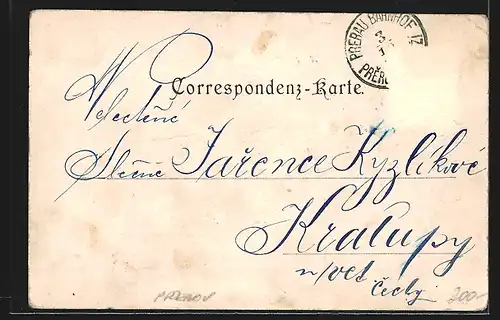 PRERAU BAHNHOF
PŘERO
Correspondenz-Karte.
Velectěné
Slečně Jařence Kyzlíkové
Kralupy
n/Vlt
Čechy
PŘEROV
200-